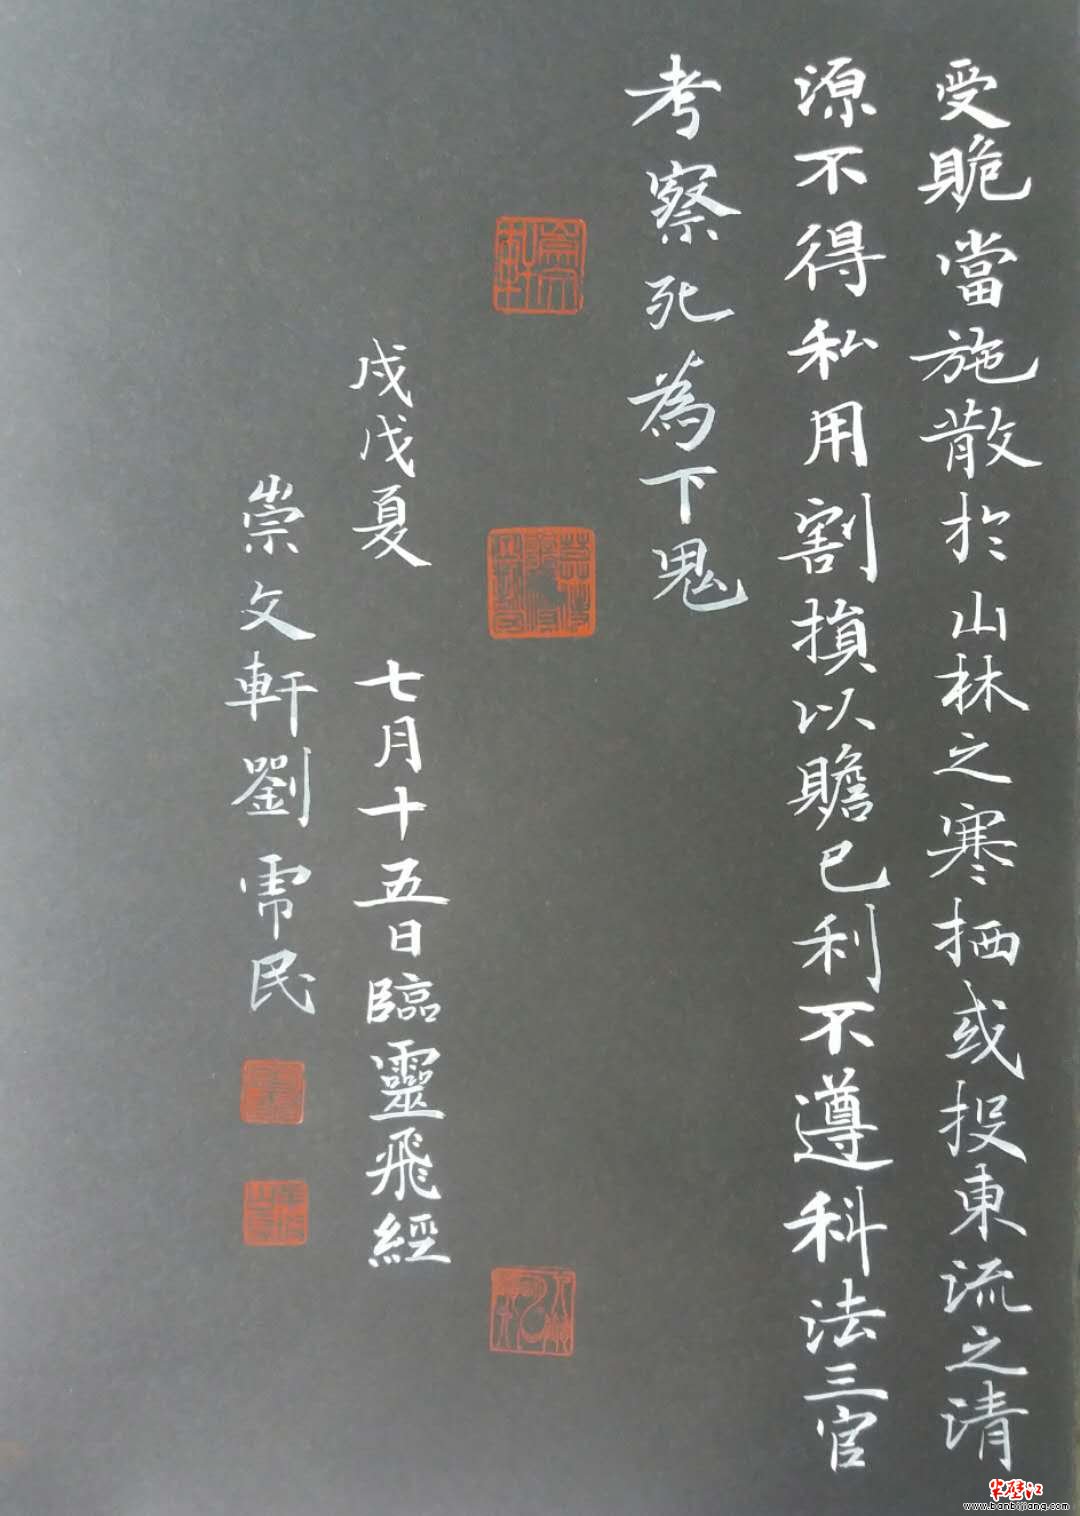 受賄當施散於山林之寒栖或投東流之清
源不得私用割損以贍已利不遵科法三官
考察死為下鬼
戊戌夏 七月十五日臨靈飛經
崇文軒劉帬民
半壁江
www.banbijiang.com